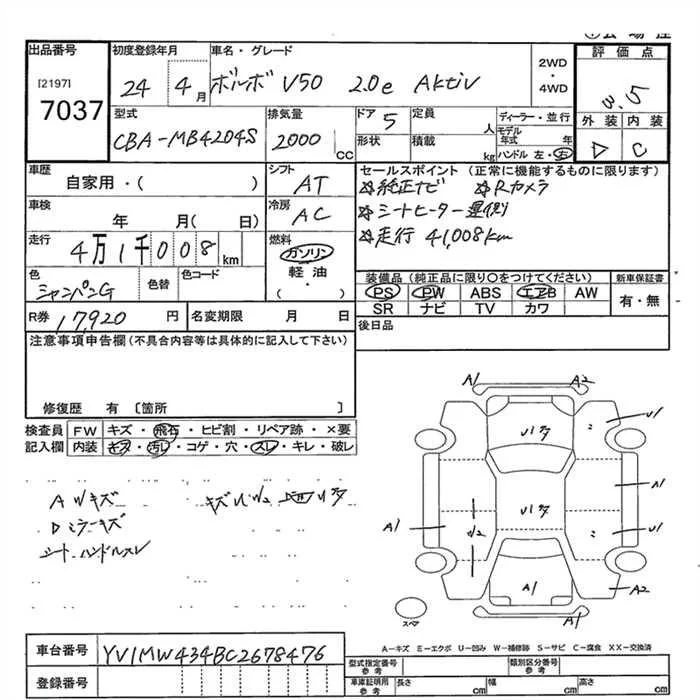 出品番号
[2197]
7037
初度登録年月
24 4月
車名・グレード
ボルボ V50 2.0e Aktiv
2WD
・
4WD
評価点
3.5
型式
CBA-MB4204S
排気量
2000 CC
ドア 5
形状
定員 人
積載 kg
ディーラー・並行
モデル
年式 年
ハンドル 左・右
外装 内装
D C
車歴
自家用・( )
シフト
AT
車検
年 月( 日)
冷房
AC
走行
4万1千008 km
燃料
ガソリン
軽油
・( )
色
シャンパンG
色替
色コード
セールスポイント (正常に機能するものに限ります)
☆純正ナビ ☆Rカメラ
☆シートヒーター運側
☆走行 41,008km
装備品 (純正品に限り〇をつけてください)
PS PW ABS エアB AW
SR ナビ TV カワ
新車保証書
有・無
R券 17,920 円
名変期限 月 日
後日品
注意事項申告欄(不具合内容等は具体的に記入して下さい)
修復歴 有 〔箇所 〕
検査員
記入欄
FW キズ・飛石・ヒビ割・リペア跡・×要
内装 キズ・汚レ・コゲ・穴・スレ・キレ・破レ
AWキズ
Dミラーキズ
シート・ハンドルスレ
A1 A2
U1
A1
U1
A2
A1
A1
A1
スペア
A-キズ E-エクボ U-凹み W-補修跡 S-サビ C-腐食 XX-交換済
車台番号
YV1MW434BC2678476
登録番号
型式指定番号
参考
類別区分番号
参考
車庫証明用
参考
長さ cm
幅 cm
高さ cm